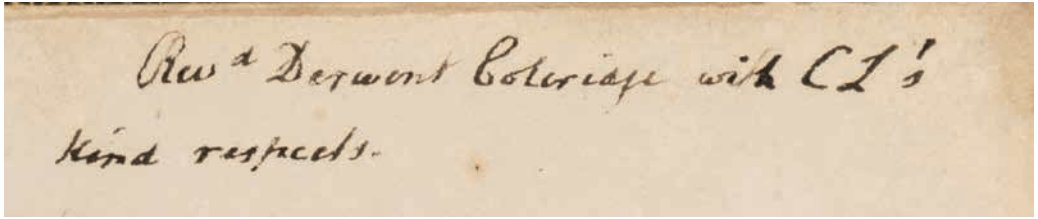 Revd Derwent Coleridge with CL's
kind respects.